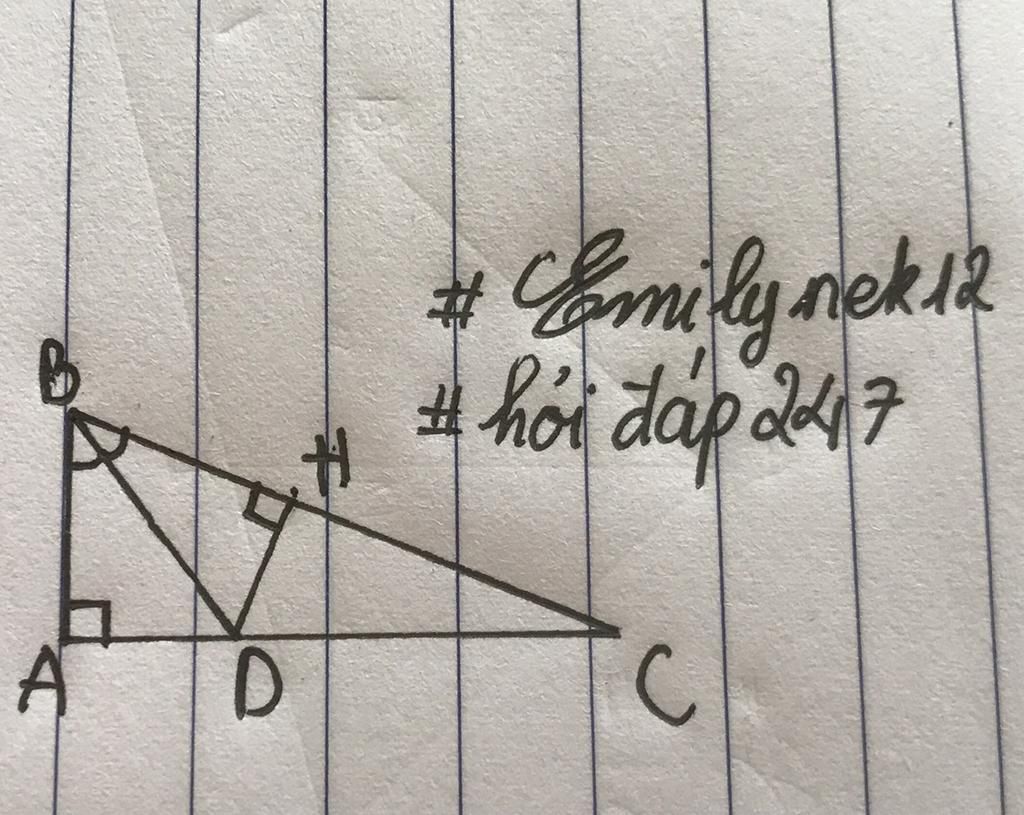 # Emily nek12
# hỏi đáp 247
B
H
A
D
C